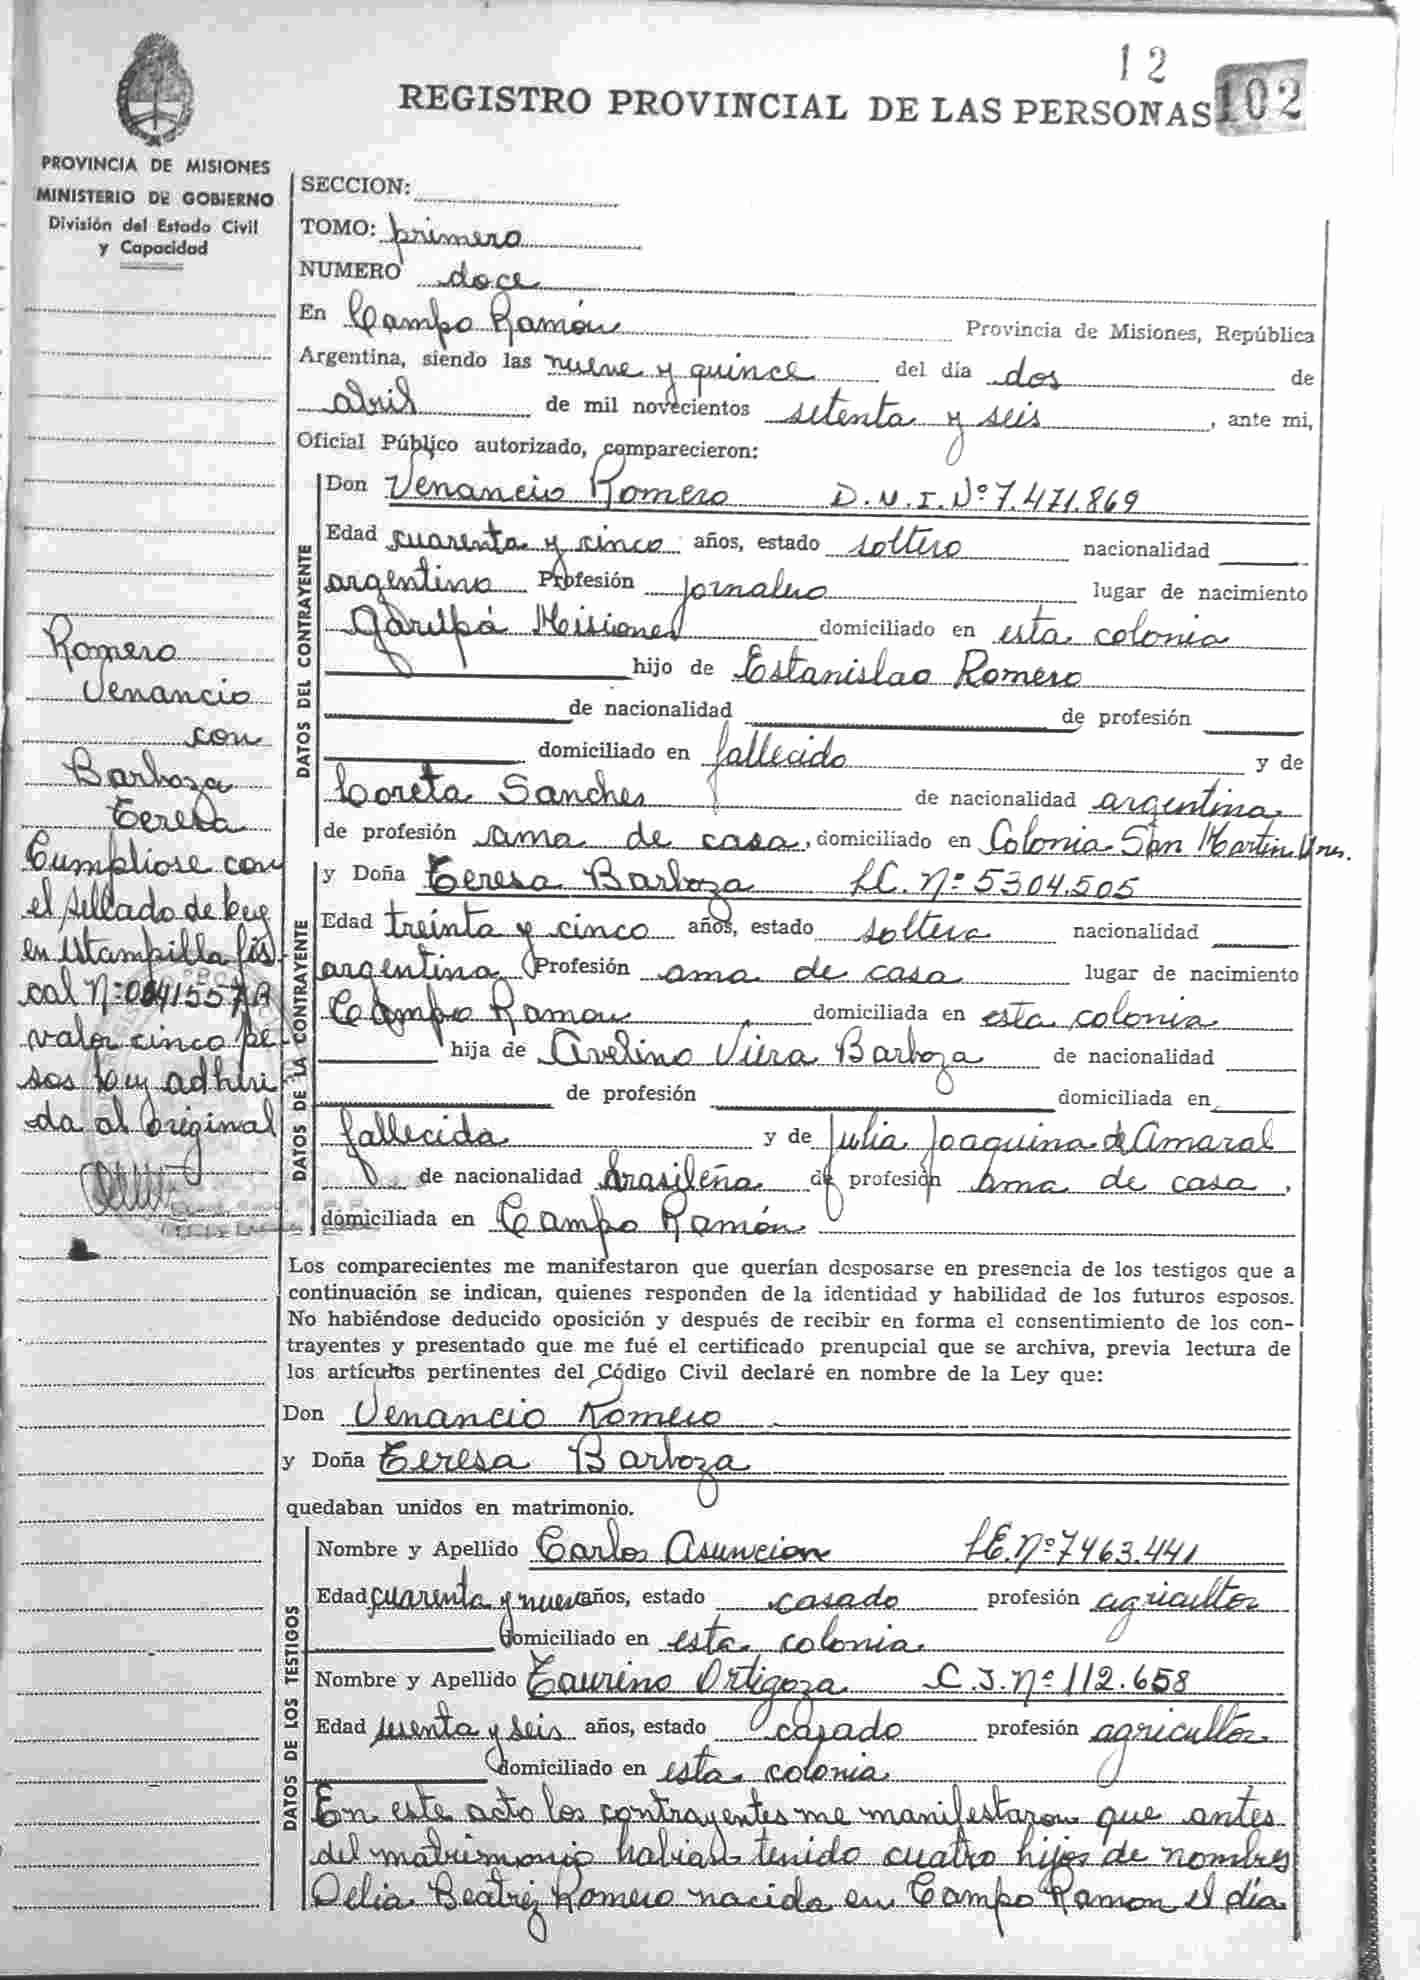 12
102
REGISTRO PROVINCIAL DE LAS PERSONAS
PROVINCIA DE MISIONES
MINISTERIO DE GOBIERNO
División del Estado Civil
y Capacidad
SECCION:
TOMO: primero
NUMERO doce
En Campo Ramón Provincia de Misiones, República
Argentina, siendo las nueve y quince del día dos de
abril de mil novecientos setenta y seis, ante mi,
Oficial Público autorizado, comparecieron:
DATOS DEL CONTRAYENTE
Don Venancio Romero D.N.I.Nº7.471.869
Edad cuarenta y cinco años, estado soltero nacionalidad
argentino Profesión jornalero lugar de nacimiento
Garupá Misiones domiciliado en esta colonia
hijo de Estanislao Romero
de nacionalidad de profesión
domiciliado en fallecido y de
Loreta Sanches de nacionalidad argentina
de profesión ama de casa, domiciliado en Colonia San Martin
DATOS DE LA CONTRAYENTE
y Doña Teresa Barboza LC. Nº 5304.505
Edad treinta y cinco años, estado soltera nacionalidad
argentina Profesión ama de casa lugar de nacimiento
Campo Ramon domiciliada en esta colonia
hija de Avelino Viera Barboza de nacionalidad
de profesión domiciliada en
fallecida y de Julia Joaquina de Amaral
de nacionalidad brasileña de profesión ama de casa,
domiciliada en Campo Ramón
Romero
Venancio
con
Barboza
Teresa
Cumpliose con
el sellado de ley
en Estampilla fis
cal Nº
valor cinco pe
sos ley adheri
da al original
Los comparecientes me manifestaron que querían desposarse en presencia de los testigos que a
continuación se indican, quienes responden de la identidad y habilidad de los futuros esposos.
No habiéndose deducido oposición y después de recibir en forma el consentimiento de los con-
trayentes y presentado que me fué el certificado prenupcial que se archiva, previa lectura de
los artículos pertinentes del Código Civil declaré en nombre de la Ley que:
Don Venancio Romero
y Doña Teresa Barboza
quedaban unidos en matrimonio.
DATOS DE LOS TESTIGOS
Nombre y Apellido Carlos Asuncion LE.Nº7463.441
Edad cuarenta y nueve años, estado casado profesión agricultor
domiciliado en esta colonia
Nombre y Apellido Taurino Ortigoza C.I.Nº112.658
Edad y seis años, estado casado profesión agricultor
domiciliado en esta colonia
En este acto los contrayentes me manifestaron que antes
del matrimonio habian tenido cuatro hijos de nombres
Delia Beatriz Romero nacida en Campo Ramon el día